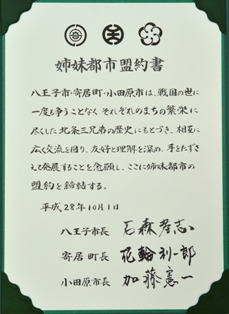 姉妹都市盟約書
八王子市・寄居町・小田原市は、戦国の世に
一度も争うことなくそれぞれのまちの繁栄に
尽くした北条三兄弟の歴史にもとづき、相互に
広く交流を図り、友好と理解を深め、手をたずさ
えて発展することを念願し、ここに姉妹都市の
盟約を締結する。
平成28年10月1日
八王子市長 石森孝志
寄居町長 花輪利一郎
小田原市長 加藤憲一